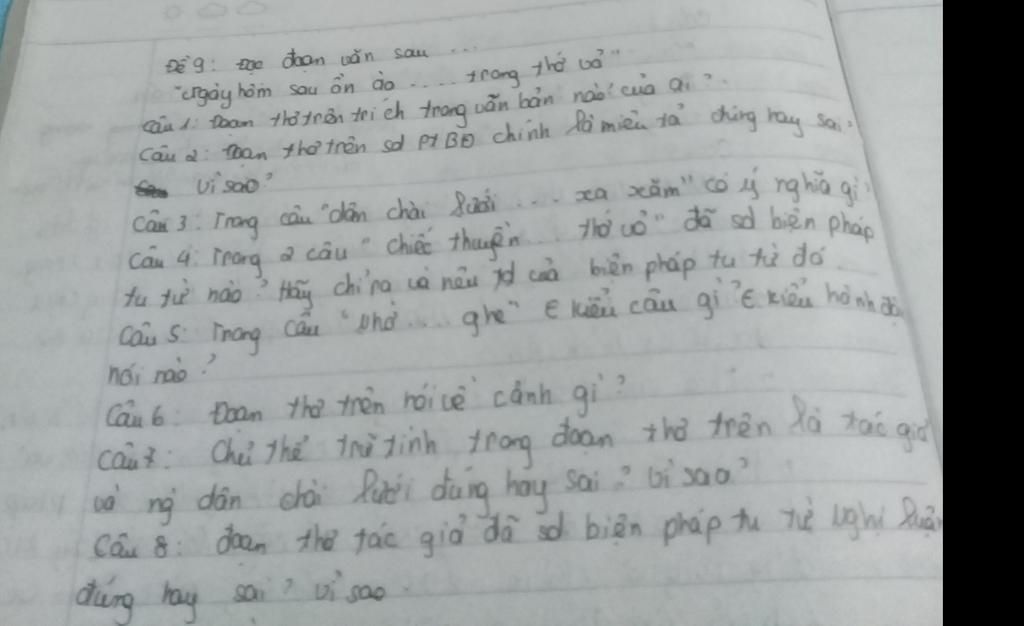 Đề 9: Đọc đoạn văn sau ...
"Ngày hôm sau ồn ào .... trong thớ vỏ"
Câu 1: Đoạn thơ trên trích trong văn bản nào? của ai?
Câu 2: Đoạn thơ trên sd PTBĐ chính là miêu tả đúng hay sai?
Vì sao?
Câu 3: Trong câu "dân chài lưới .... xa xăm" có ý nghĩa gì?
Câu 4: Trong 2 câu "chiếc thuyền ... thớ vỏ" đã sd biện pháp
tu từ nào? Hãy chỉ ra và nêu td của biện pháp tu từ đó
Câu 5: Trong câu "nhờ .... ghe" ∈ kiểu câu gì? ∈ kiểu hành độ
nói nào?
Câu 6: Đoạn thơ trên nói về cảnh gì?
Câu 7: Chủ thể trữ tình trong đoạn thơ trên là tác giả
và ng dân chài lưới đúng hay sai? Vì sao?
Câu 8: đoạn thơ tác giả đã sd biện pháp tu từ nghị luận
đúng hay sai? Vì sao.